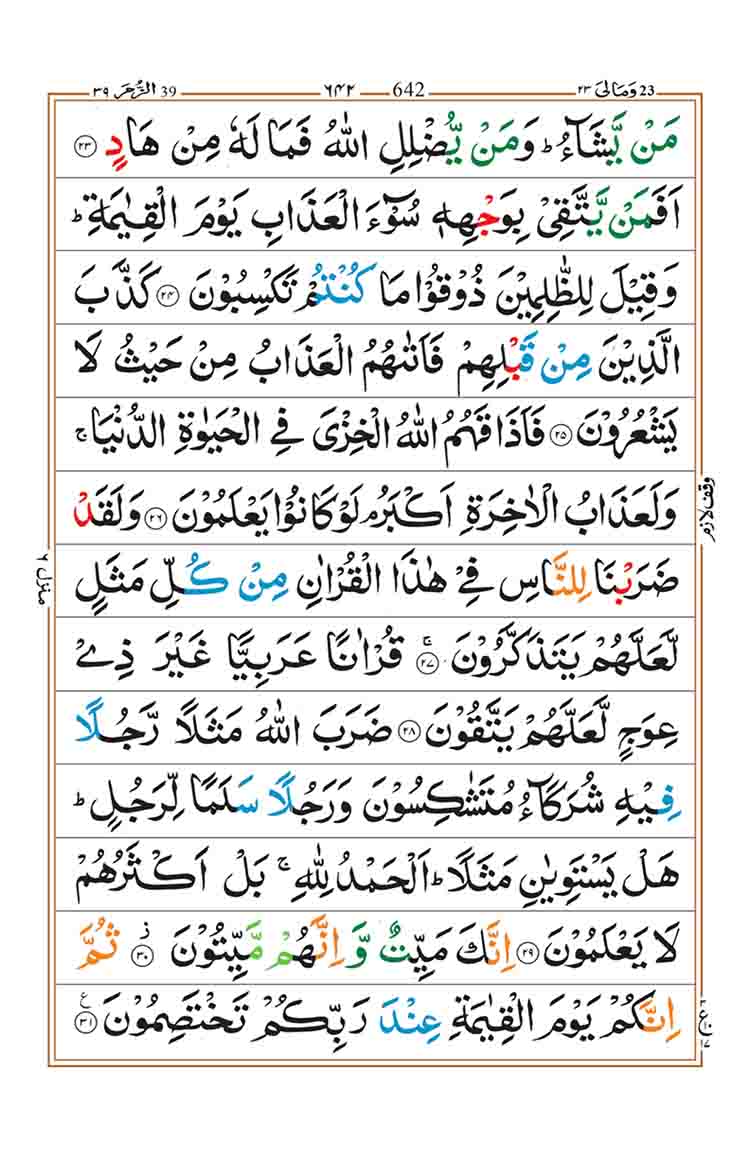 23 وَمَالِیَ ٢٣
642 ٦٤٢
39 الزُّمَر ٣٩
مَنْ يَّشَآءُ ؕ وَمَنْ يُّضْلِلِ اللّٰهُ فَمَا لَهٗ مِنْ هَادٍ ۝۲۳
اَفَمَنْ يَّتَّقِىْ بِوَجْهِهٖ سُوْٓءَ الْعَذَابِ يَوْمَ الْقِيٰمَةِ ؕ
وَقِيْلَ لِلظّٰلِمِيْنَ ذُوْقُوْا مَا كُنْتُمْ تَكْسِبُوْنَ ۝۲۴ كَذَّبَ
الَّذِيْنَ مِنْ قَبْلِهِمْ فَاَتٰٮهُمُ الْعَذَابُ مِنْ حَيْثُ لَا
يَشْعُرُوْنَ ۝۲۵ فَاَذَاقَهُمُ اللّٰهُ الْخِزْىَ فِى الْحَيٰوةِ الدُّنْيَا ۚ
وَلَعَذَابُ الْاٰخِرَةِ اَكْبَرُ ۘ لَوْ كَانُوْا يَعْلَمُوْنَ ۝۲۶ وَلَقَدْ
ضَرَبْنَا لِلنَّاسِ فِىْ هٰذَا الْقُرْاٰنِ مِنْ كُلِّ مَثَلٍ
لَّعَلَّهُمْ يَتَذَكَّرُوْنَ ۚ‏ ۝۲۷ قُرْاٰنًا عَرَبِيًّا غَيْرَ ذِىْ
عِوَجٍ لَّعَلَّهُمْ يَتَّقُوْنَ ۝۲۸ ضَرَبَ اللّٰهُ مَثَلًا رَّجُلًا
فِيْهِ شُرَكَآءُ مُتَشٰكِسُوْنَ وَرَجُلًا سَلَمًا لِّرَجُلٍ ؕ
هَلْ يَسْتَوِيٰنِ مَثَلًا ؕ اَلْحَمْدُ لِلّٰهِ ۚ بَلْ اَكْثَرُهُمْ
لَا يَعْلَمُوْنَ ۝۲۹ اِنَّكَ مَيِّتٌ وَّاِنَّهُمْ مَّيِّتُوْنَ ۝۳۰ ز ثُمَّ
اِنَّكُمْ يَوْمَ الْقِيٰمَةِ عِنْدَ رَبِّكُمْ تَخْتَصِمُوْنَ ۝۳۱ ع
وقف لازم
منزل ٦
ع ١٧